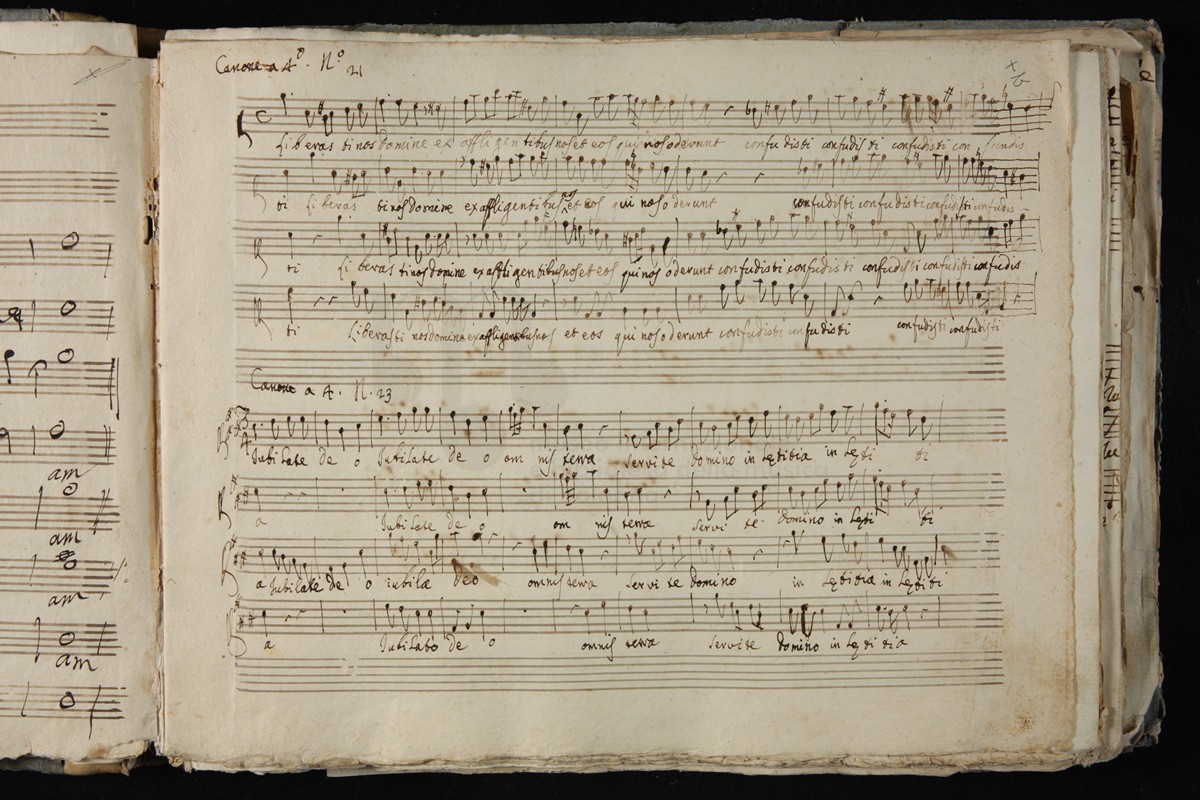 Canone a 4º. Nº 21
Liberas ti nos domine ex affligentibus nos et eos qui nos oderunt confu disti confudis ti confudisti con fundis
ti Liberas ti nos domine ex affligentibus nos et eos qui nos o derunt confudisti confudisti confudisti confudis
ti Li beras ti nos domine ex affligentibus nos et eos qui nos oderunt confudisti confudis ti confudisti confudisti confudis
ti Liberasti nos domine ex affligentibus nos et eos qui nos o derunt confudisti confu disti confudisti confudisti
Canone a 4. N. 23
Iubilate de o Iubilate de o om nis terra servi te domino in letitia in leti ti
a Iubilate de o om nis terra servi te domino in leti ti
a Iubilate de o iubila deo omnis terra servi te domino in letitia in letiti
a Iubilato de o omnis terra servite domino in leti tia
am
am
am
am